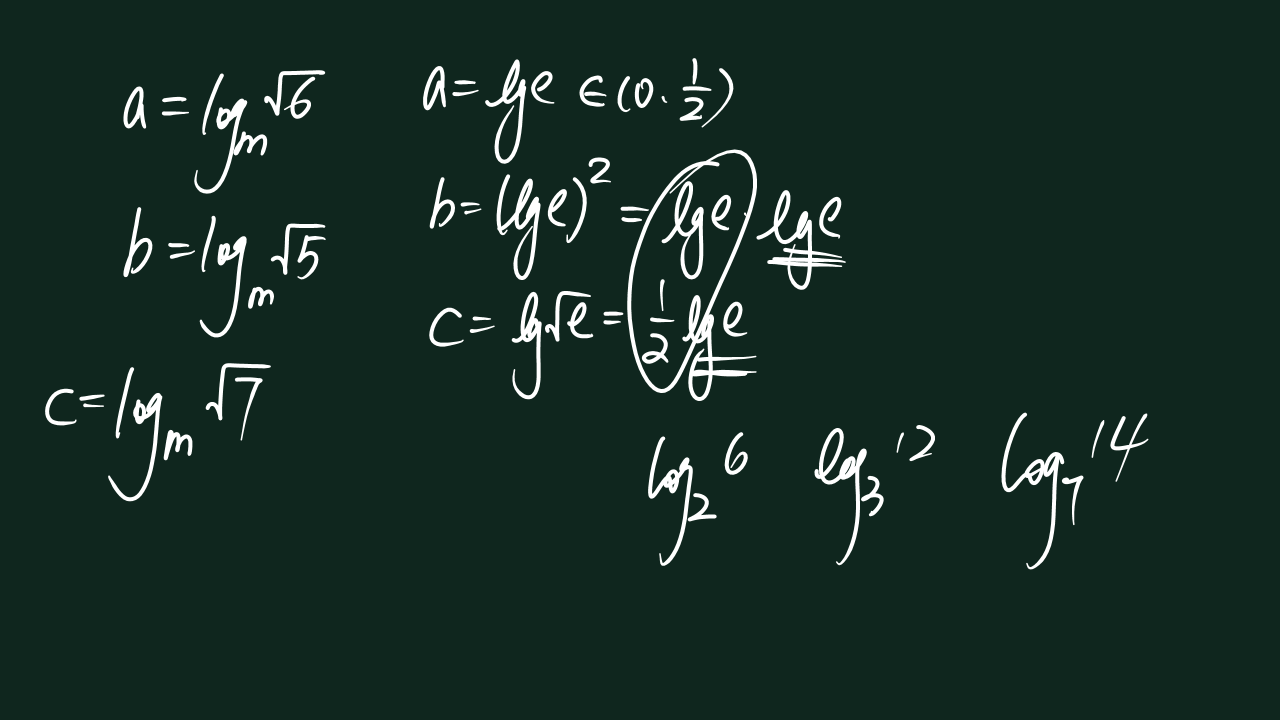 a = log_m √6
b = log_m √5
c = log_m √7
a = lg e ∈ (0, 1/2)
b = (lg e)² = lg e · lg e
c = lg √e = 1/2 lg e
log₂ 6 log₃ 12 log₇ 14